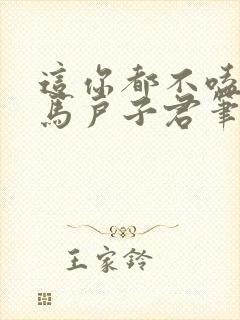 這你都不嗑
馬戶子君筆
王家鈴